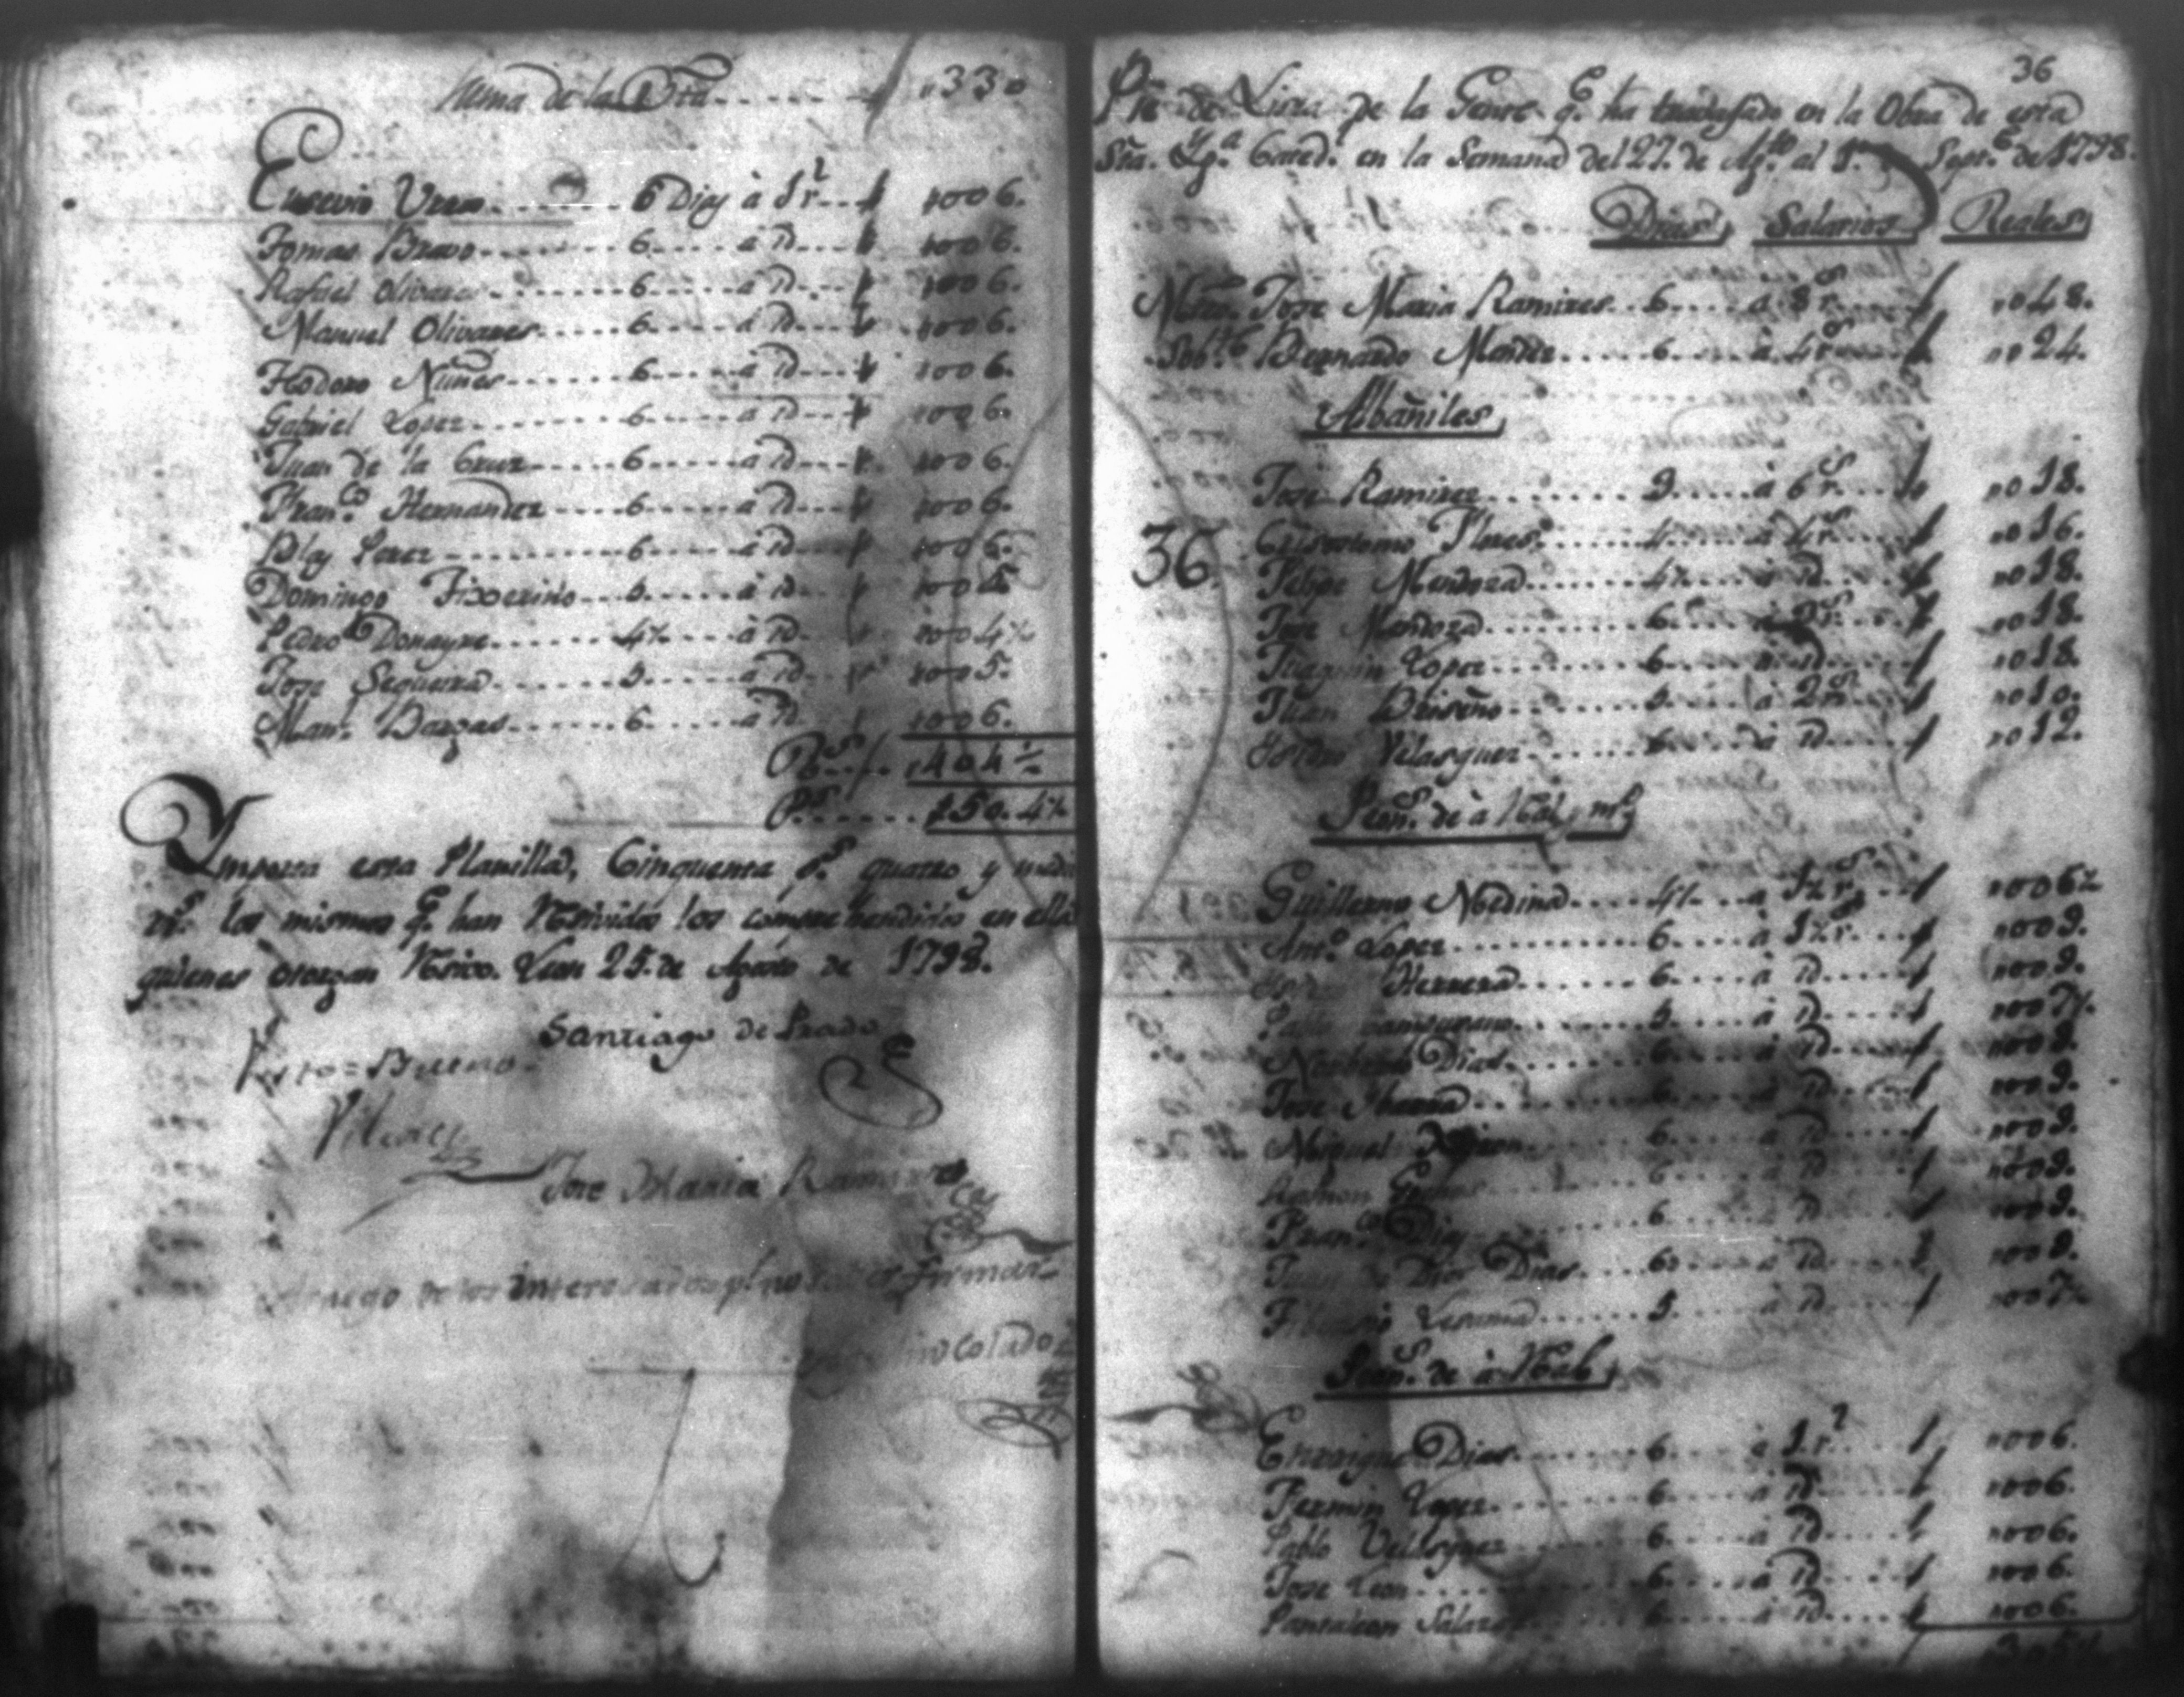 Suma de la Bta ........ 330
Eusevio Veras ........ 6 Dias à 1 rl. 006.
Tomas Bravo ........ 6 .... à id. 006.
Rafael Olivares ........ 6 .... à id. 006.
Manuel Olivares ........ 6 .... à id. 006.
Teodoro Nuñes ........ 6 .... à id. 006.
Gabriel Lopez ........ 6 .... à id. 006.
Juan de la Cruz ........ 6 .... à id. 006.
Franco. Hernandez ........ 6 .... à id. 006.
Blas Perez ........ 6 .... à id. 006.
Domingo ........ 5 .... à id. 005
Pedro Donayre ........ 4½ .... à id. 004½
Jose Segueira ........ 5 .... à id. 005.
Manl. Bargas ........ 6 .... à id. 006.
Rs. .... 404½
Ps. .... 50. 4½
Ymporta esta Planilla, Cinquenta ps. quatro y medio
rs. los mismos qe. han Resivido los comprehendidos en ella
quienes otorgan Resivo. Leon 25. de Agosto de 1798.
Santiago de Prado
Visto=Bueno
Vilches
Jose Maria Ramires
Arruego de los interesados pr. no saver firmar
colado
36
de Lista de la Gente qe. ha travajado en la Obra de esta
Sta. Yga. Cated. en la Semana del 27. de Agto. al 1o. Sepre. de 1798.
Dias Salarios Reales
Mtro. Jose Maria Ramires .. 6 .... à 8 rs. 048.
Sobte. Bernardo Mendez .... 6 .... à 4 rs. 024.
Albañiles
Jose Ramirez ........ 3 .... à 6 rs. 018.
36. Crisostomo Flores ........ 4 .... à 4 rs. 016.
Felipe Mendoza ........ 4½ .... à id. 018.
Jose Mendoza ........ 6 .... à 3 rs. 018.
Juaquin Lopez ........ 6 .... à id. 018.
Juan Briseño ........ 5 .... à 2 rs. 010.
Velasquez ........ 6 .... à id. 012.
Peons. de à Real y mo.
Guillermo Medina ........ 4½ .... à 1½ rs. 006½
Anto. Lopez ........ 6 .... à 1½ rs. 009.
Herrera ........ 6 .... à id. 009.
........ 5 .... à id. 007½
Norberto Dias ........ 6 .... à id. 009.
Jose Ybarra ........ 6 .... à id. 009.
Miguel ........ 6 .... à id. 009.
Ramon ........ 6 .... à id. 009.
Franco. Dias ........ 6 .... à id. 009.
Juan de Dios Dias ........ 6 .... à id. 009.
Lesama ........ 5 .... à id. 007½
Peons. de à Real
Enrrique Dias ........ 6 .... à 1 rl. 006.
Fermin Lopez ........ 6 .... à id. 006.
Pablo Velasquez ........ 6 .... à id. 006.
Jose Leon ........ 6 .... à id. 006.
Pantaleon Salazar ........ 6 .... à id. 006.